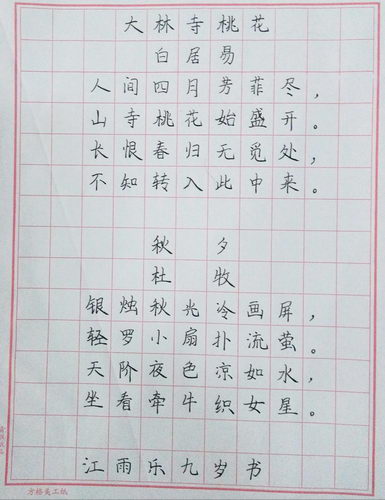 大林寺桃花
白居易
人间四月芳菲尽，
山寺桃花始盛开。
长恨春归无觅处，
不知转入此中来。
秋夕
杜牧
银烛秋光冷画屏，
轻罗小扇扑流萤。
天阶夜色凉如水，
坐看牵牛织女星。
江雨乐九岁书
方格美工纸